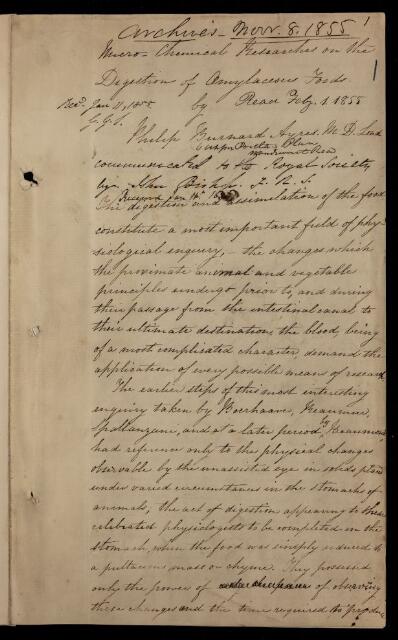 Archives - Novr. 8. 1855
1
Micro-Chemical Researches on the
Digestion of Amylaceous Foods
Recd. Jan 11, 1855 by Read Feby. 1. 1855
G.G.S.
Philip Burnard Ayres. M.D. Lond
communicated to the Royal Society
by John Bishop. F.R.S.
Received Jan
The digestion and assimilation of the food
constitute a most important field of phy-
siological enquiry, - the changes which
the proximate animal and vegetable
principles undergo prior to, and during
their passage from the intestinal canal to
their ultimate destination, the blood, being
of a most complicated character, demand the
application of every possible means of research
The earlier steps of this most interesting
enquiry taken by Boerhaave, Reaumur,
Spallanzani, and at a later period by Beaumont
had reference only to the physical changes
observable by the unassisted eye in solids placed
under varied circumstances in the stomachs of
animals; the act of digestion appearing to these
celebrated physiologists to be completed in the
stomach, when the food was simply reduced to
a pultaceous mass or chyme. They possessed
only the power of of observing
these changes and the time required to produce